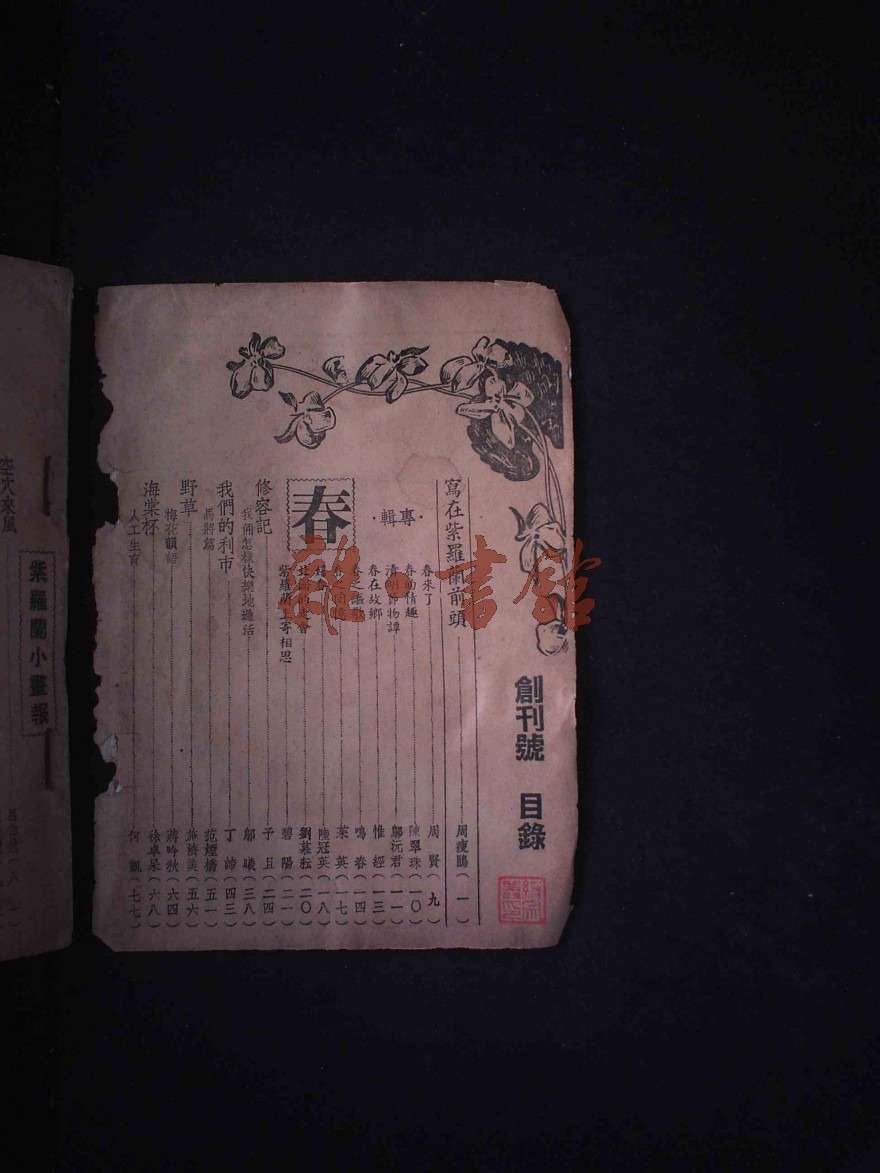 創刊號 目錄
寫在紫羅蘭前頭 周瘦鵑(一)
春
·專輯·
春來了 周賢(九)
春的情趣 陳翠珠(一〇)
清明節物譚 鄔沅君(一一)
春在故鄉 惟經(一三)
春之謳歌 鳴春(一四)
茱英(一七)
陸冠英(一八)
劉慕耘(二〇)
紫羅蘭上寄相思 碧陽(二一)
修容記 予且(二四)
我倆怎樣快樂地過活 鄔曦(三八)
我們的利市 丁諦(四三)
馬將篇 范煙橋(五一)
野草 施濟美(五六)
梅花韻語 蔣吟秋(六四)
海棠杯 徐卓呆(六八)
人工生育 何(七七)
紫羅蘭小畫報
空穴來風
雜·書館